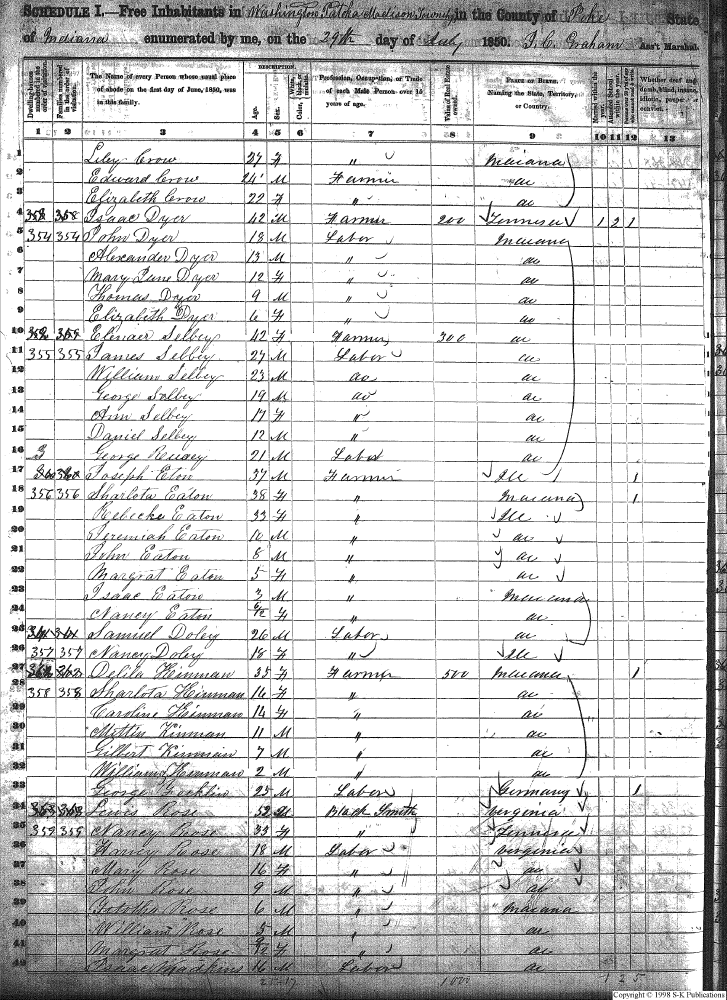 SCHEDULE I.—Free Inhabitants in Washington, Patoka, Madison Township in the County of Pike State
of Indiana enumerated by me, on the 29th day of July 1850. Graham Ass't Marshal.
DESCRIPTION.
Dwelling-houses numbered in the order of visitation.
Families numbered in the order of visitation.
The Name of every Person whose usual place of abode on the first day of June, 1850, was in this family.
Age. Sex. Color,
Profession, Occupation, or Trade of each Male Person over 15 years of age.
Value of Real Estate owned.
PLACE OF BIRTH. Naming the State, Territory, or Country.
Married within the year.
Whether deaf and dumb, blind, insane, idiotic, pauper, or convict.
1 2 3 4 5 6 7 8 9 10 11 12 13
1 Crow 27 F " Indiana
2 Edward Crow 24 M Farmer do
3 Elizabeth Crow 22 F " do
4 358 Isaac Dyer 42 M Farmer 200 Tennessee 1 2 1
5 354 354 John Dyer 18 M Labor Indiana
6 Alexander Dyer 13 M " do
7 Mary Jane Dyer 12 F " do
8 Thomas Dyer 9 M " do
9 Elizabeth Dyer 6 F " do
10 Selbey 42 F Farmer 300 do
11 355 355 James Selbey 27 M Labor do
12 William Selbey 23 M do do
13 George Selbey 19 M do do
14 Ann Selbey 17 F " do
15 Daniel Selbey 12 M " do
16 George 21 M Labor do
17 Joseph Eton 37 M Farmer Ill 1 1
18 356 356 Sharlota Eaton 38 F " Indiana 1
19 Rebecke Eaton 33 F " Ill
20 Jeremiah Eaton 10 M " do
21 John Eaton 8 M " do
22 Margrat Eaton 5 F " do
23 Isaac Eaton 3 M Indiana
24 Nancy Eaton F " do
25 Samuel Doley 26 M Labor do
26 357 357 Nancy Doley 18 F " Ill
27 Delila Hinman 35 F Farmer 500 Indiana 1
28 358 358 Sharlota Hinman 16 F " do
29 Caroline Hinman 14 F " do
30 Kinman 11 M " do
31 Gilbert Kinman 7 M " do
32 William Hinman 2 M " do
33 George 25 M Labor Germany 1
34 Lewis Rose 52 M Black Smith Virginia
35 359 359 Nancy Rose 33 F " Tennessee
36 Rose 18 M Labor Virginia
37 Mary Rose 16 F " do
38 John Rose 9 M " do
39 Rose 6 M " Indiana
40 William Rose 5 M " do
41 Margrat Rose F " do
42 Isaac 16 M Labor do
1000 1 2 5
Copyright © 1998 S-K Publications